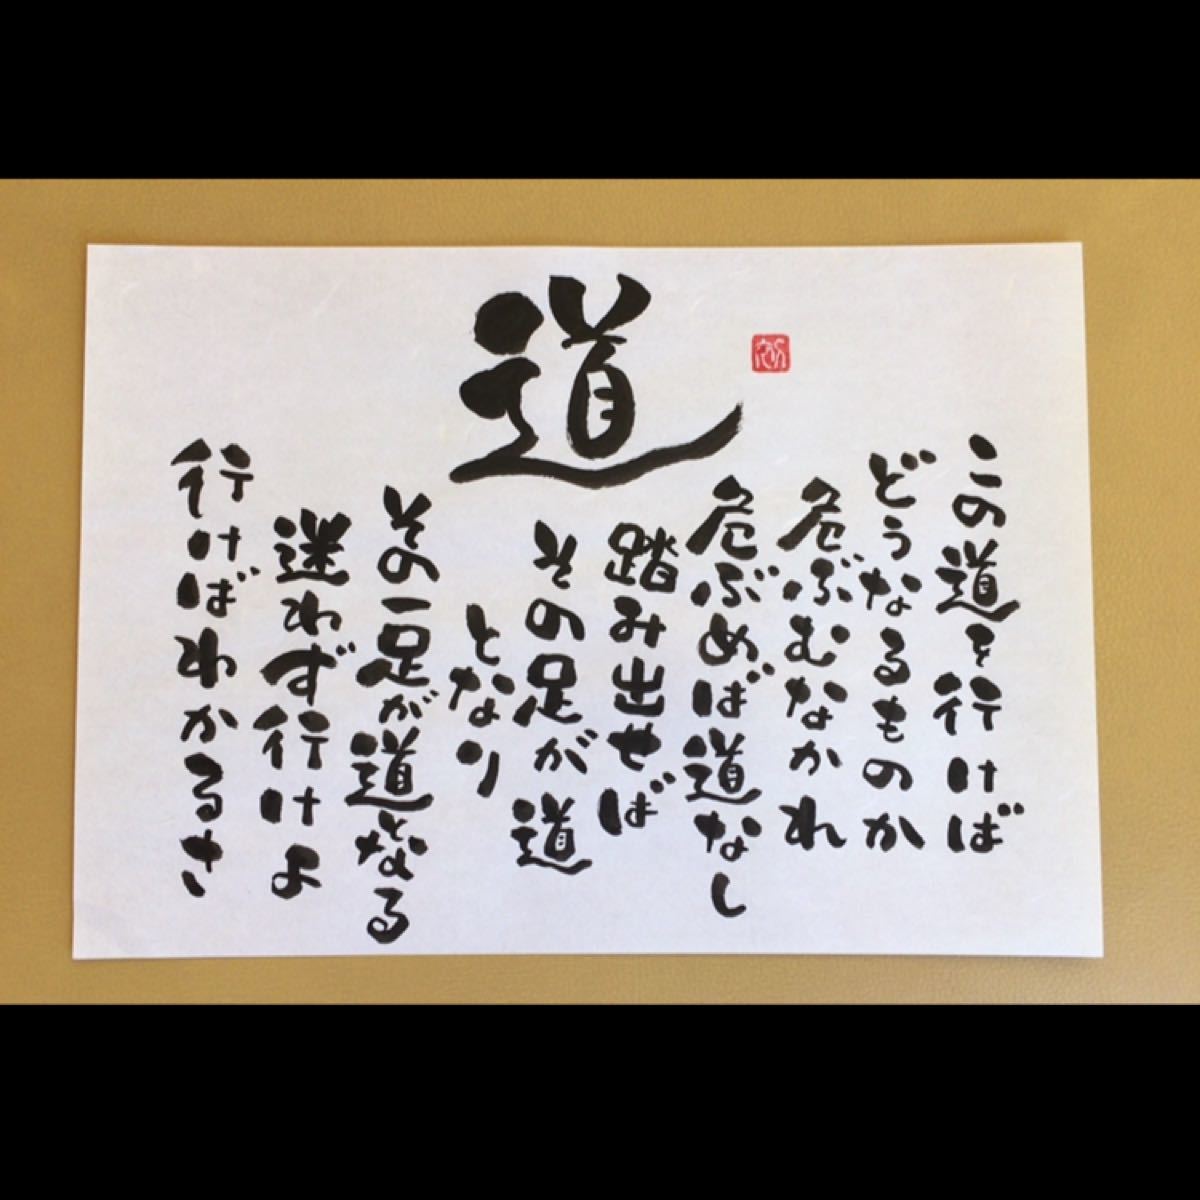 道
この道を行けば
どうなるものか
危ぶむなかれ
危ぶめば道なし
踏み出せば
その足が道
となり
その一足が道となる
迷わず行けよ
行けばわかるさ